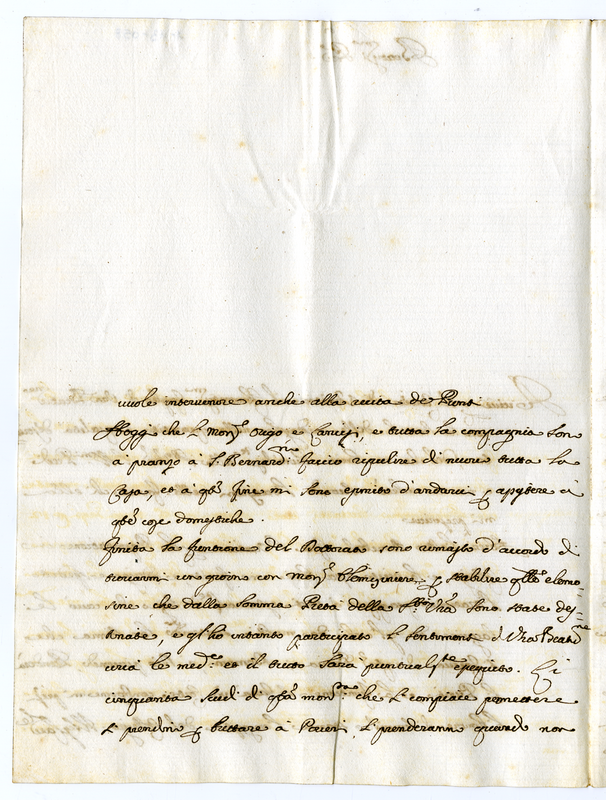 vuole intervenire anche alla recita de
che li Mons.r Origo e, e tutta la compagnia son
a pranzo à S. Bernard.no faccio ripulire di nuovo tutta la
Casa, et à q.to fine mi sono esimito d'andarci p assistere à
q.te cose domestiche.
finita la funtione del Dottorato sono rimasto d'accordo di
trovarmi un giorno con Mons.r Elemosiniere, p stabilire q.lle elemo-
sine che dalla somma Pietà della S.tà V.ra sono state des-
tinate, e gl'ho intanto participato li sentimenti di V.ra Beatitud.ne
circa le med.e et il tutto sarà puntualm.te eseguito. Li
cinquanta scudi di q.sta che si compiace permettere
si prendino p buttare à Poveri, si prenderanno quando non